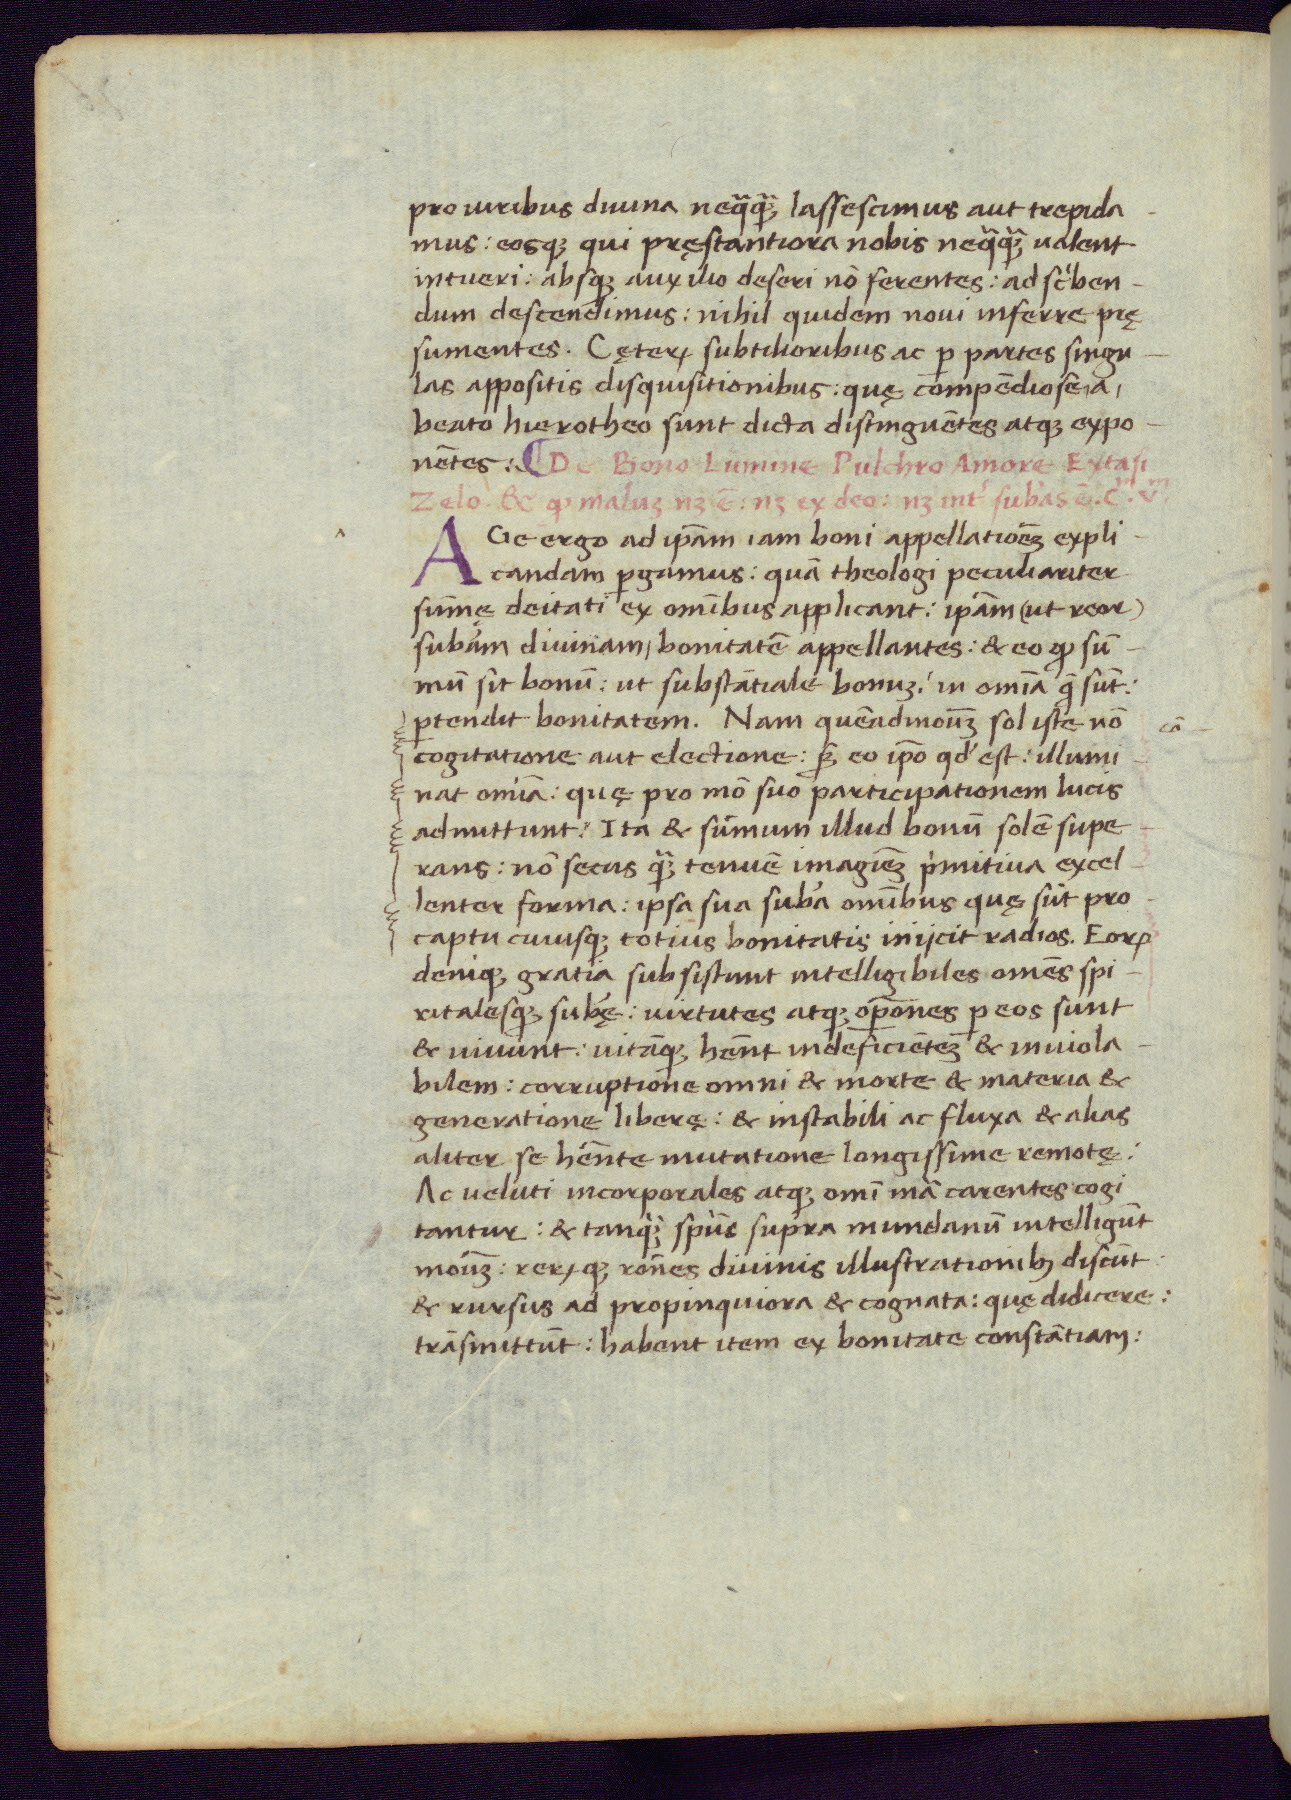 pro uiribus diuina neq̃q̃ꝫ lassescimus aut trepida-
mus: eosqꝫ qui pręstantiora nobis neq̃q̃ꝫ ualent
intueri: absqꝫ auxilio deseri nō ferentes: ad scͥben-
dum descendimus: nihil quidem noui inferre prę
sumentes. Cęteꝝ subtilioribus ac ꝑ partes singu-
las appositis disquisitionibus: quę compēdiose a
beato hierotheo sunt dicta distinguētes atqꝫ expo-
nētes: ¶ De Bono Lumine Pulchro Amore Extasi
Zelo. & ꝙ maluꝫ nꝫ ē: nꝫ ex deo: nꝫ int᷑ suba᷑s ē. Cᵐ. vᵐ.
AGe ergo ad ip̄am iam boni appellatiōeꝫ expli-
candam ꝑgamus: quā theologi peculiariter
sum̄ę deitati ex omībus applicant: ip̄am (ut reor)
suba᷑m diuinam, bonitatē appellantes: & eo ꝙ sū-
mū sit bonū: ut substātiale bonuꝫ: in omīa q̄ sūt:
ꝑtendit bonitatem. Nam quēadmoūꝫ sol iste nō
cā
cogitatione aut electione: sꝫ eo ip̄o qd᷑ est: illumi-
nat omīa: quę pro mō suo participationem lucis
admittunt: Ita & sum̄um illud bonū solē supe-
rans: nō secus q̃ꝫ tenuē imagiēꝫ pͥmitiua excel-
lenter forma: ipsa sua suba᷑ omībus quę sūt pro
captu cuiusqꝫ totius bonitatis inijcit radios. Eoꝝ
deniqꝫ gratia subsistunt intelligibiles omēs spi-
ritalesqꝫ sub᷑ę: uirtutes atqꝫ oꝑōnes ꝑ eos sunt
& uiuunt: uitāqꝫ hēnt indeficiēteꝫ & inuiola-
bilem: corruptione omni & morte & materia &
generatione liberę: & instabili ac fluxa & alias
aliter se hēnte mutatione longissime remotę:
Ac ueluti incorporales atqꝫ omī mā carentes cogi
tantur: & tanq̃ꝫ sp̄ūs supra mundanū intelligūt
moūꝫ: reꝝqꝫ rōnes diuinis illustrationibꝫ discūt
& rursus ad propinquiora & cognata: quę didicere:
trāsmittūt: habent item ex bonitate constātiam: